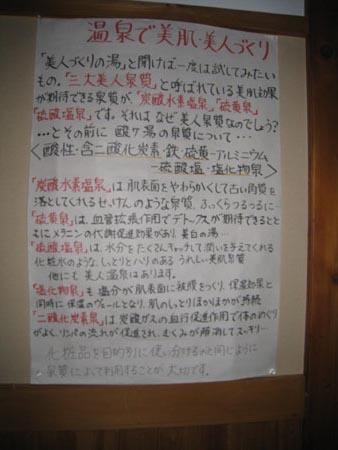 温泉で美肌・美人づくり
「美人づくりの湯」と聞けば一度は試してみたい
もの。「三大美人泉質」と呼ばれている美肌効果
が期待できる泉質が「炭酸水素塩泉」「硫黄泉」
「硫酸塩泉」です。それはなぜ美人泉質なのでしょう?
…とその前に 酸ヶ湯の泉質について…
〈酸性・含二酸化炭素・鉄・硫黄-アルミニウム
-硫酸塩・塩化物泉〉
「炭酸水素塩泉」は肌表面をやわらかくして古い角質を
落としてくれるせっけんのような泉質。ふっくらつるつるに…
「硫黄泉」は、血管拡張作用でデトックスが期待できるとと
もにメラニンの代謝促進効果があり、美白の湯…
「硫酸塩泉」は、水分をたくさんキャッチして潤いを与えてくれる
化粧水のような、しっとりとハリのある うれしい美肌泉質
他にも 美人温泉はあります。
「塩化物泉」も塩分が肌表面に被膜をつくり、保温効果と
同時に保湿のヴェールとなり、肌のしっとりぽかぽかが持続
「二酸化炭素泉」は炭酸ガスの血行促進作用で体のめぐり
がよく、リンパの流れが促進され、むくみが解消してスッキリ…
化粧品を目的別に使い分けるのと同じように
泉質によって利用することが大切です。